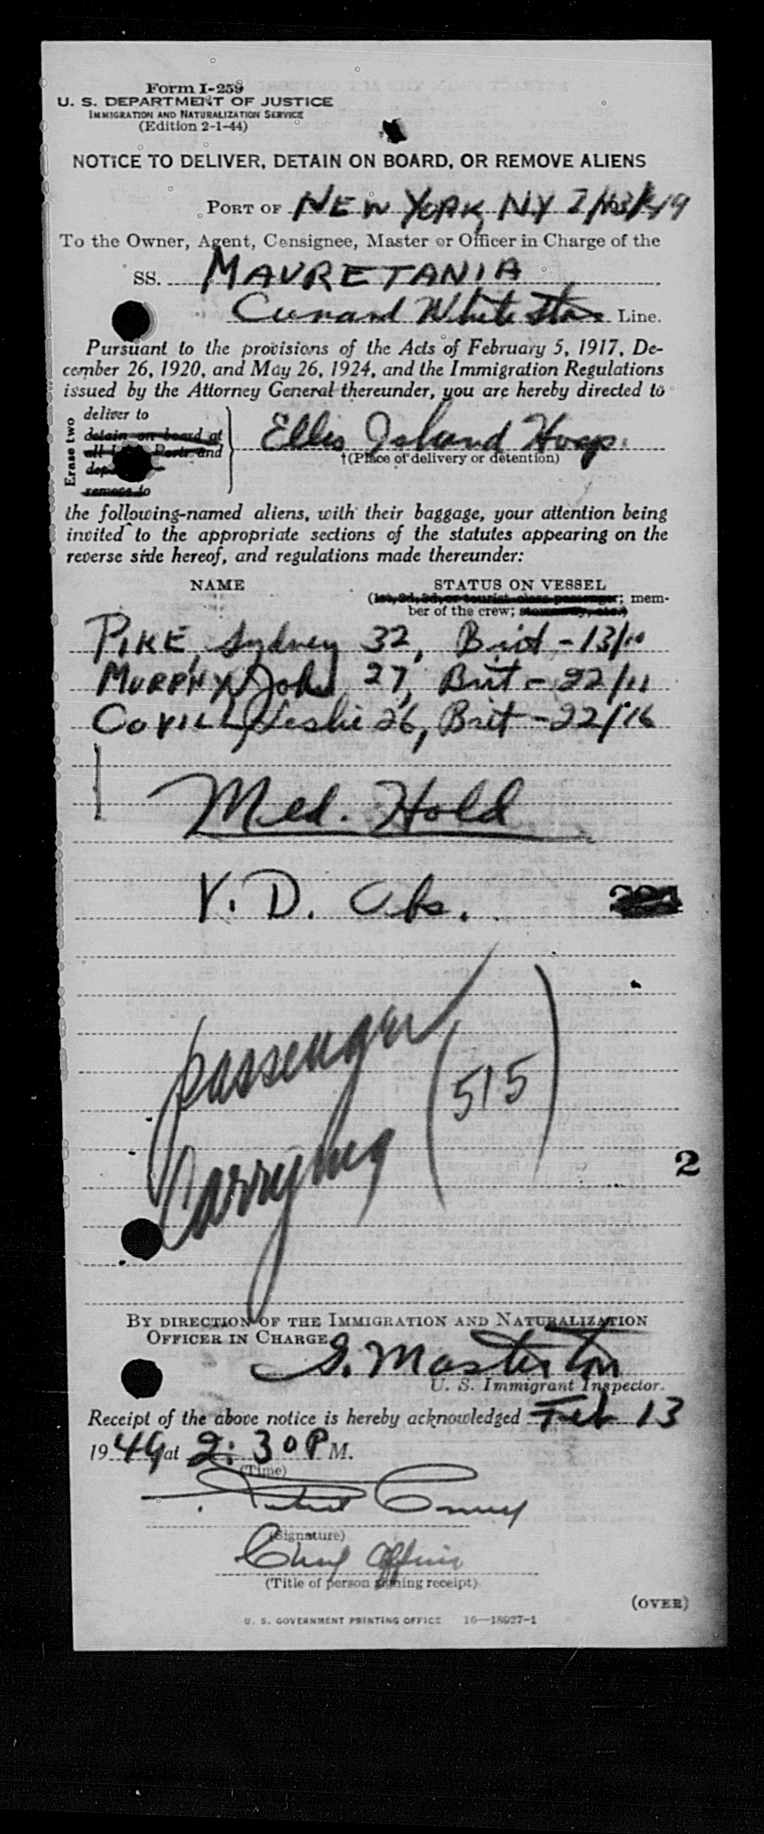 Form I-259
U. S. DEPARTMENT OF JUSTICE
IMMIGRATION AND NATURALIZATION SERVICE
(Edition 2-1-44)
NOTICE TO DELIVER, DETAIN ON BOARD, OR REMOVE ALIENS
PORT OF NEW YORK, NY 2/13/49
To the Owner, Agent, Consignee, Master or Officer in Charge of the
SS. MAURETANIA
Cunard White Star Line.
Pursuant to the provisions of the Acts of February 5, 1917, De-
cember 26, 1920, and May 26, 1924, and the Immigration Regulations
issued by the Attorney General thereunder, you are hereby directed to
Erase two
deliver to
detain on board at
all Ports and
remove to
Ellis Island Hosp.
†(Place of delivery or detention)
the following-named aliens, with their baggage, your attention being
invited to the appropriate sections of the statutes appearing on the
reverse side hereof, and regulations made thereunder:
NAME STATUS ON VESSEL
(1st, 2d, 3d, or tourist class passenger; mem-
ber of the crew;
PIKE, Sydney 32, Brit - 13/10
MURPHY, John 27, Brit - 22/11
COVILL, Leslie 26, Brit - 22/16
Med. Hold
V. D. Obs.
passenger
carrying (515)
2
BY DIRECTION OF THE IMMIGRATION AND NATURALIZATION
OFFICER IN CHARGE
G. Masterton
U. S. Immigrant Inspector.
Receipt of the above notice is hereby acknowledged Feb 13
1949 at 2:30 P M.
(Time)
(Signature)
Chief Officer
(Title of person signing receipt)
(OVER)
U. S. GOVERNMENT PRINTING OFFICE 16—18927-1